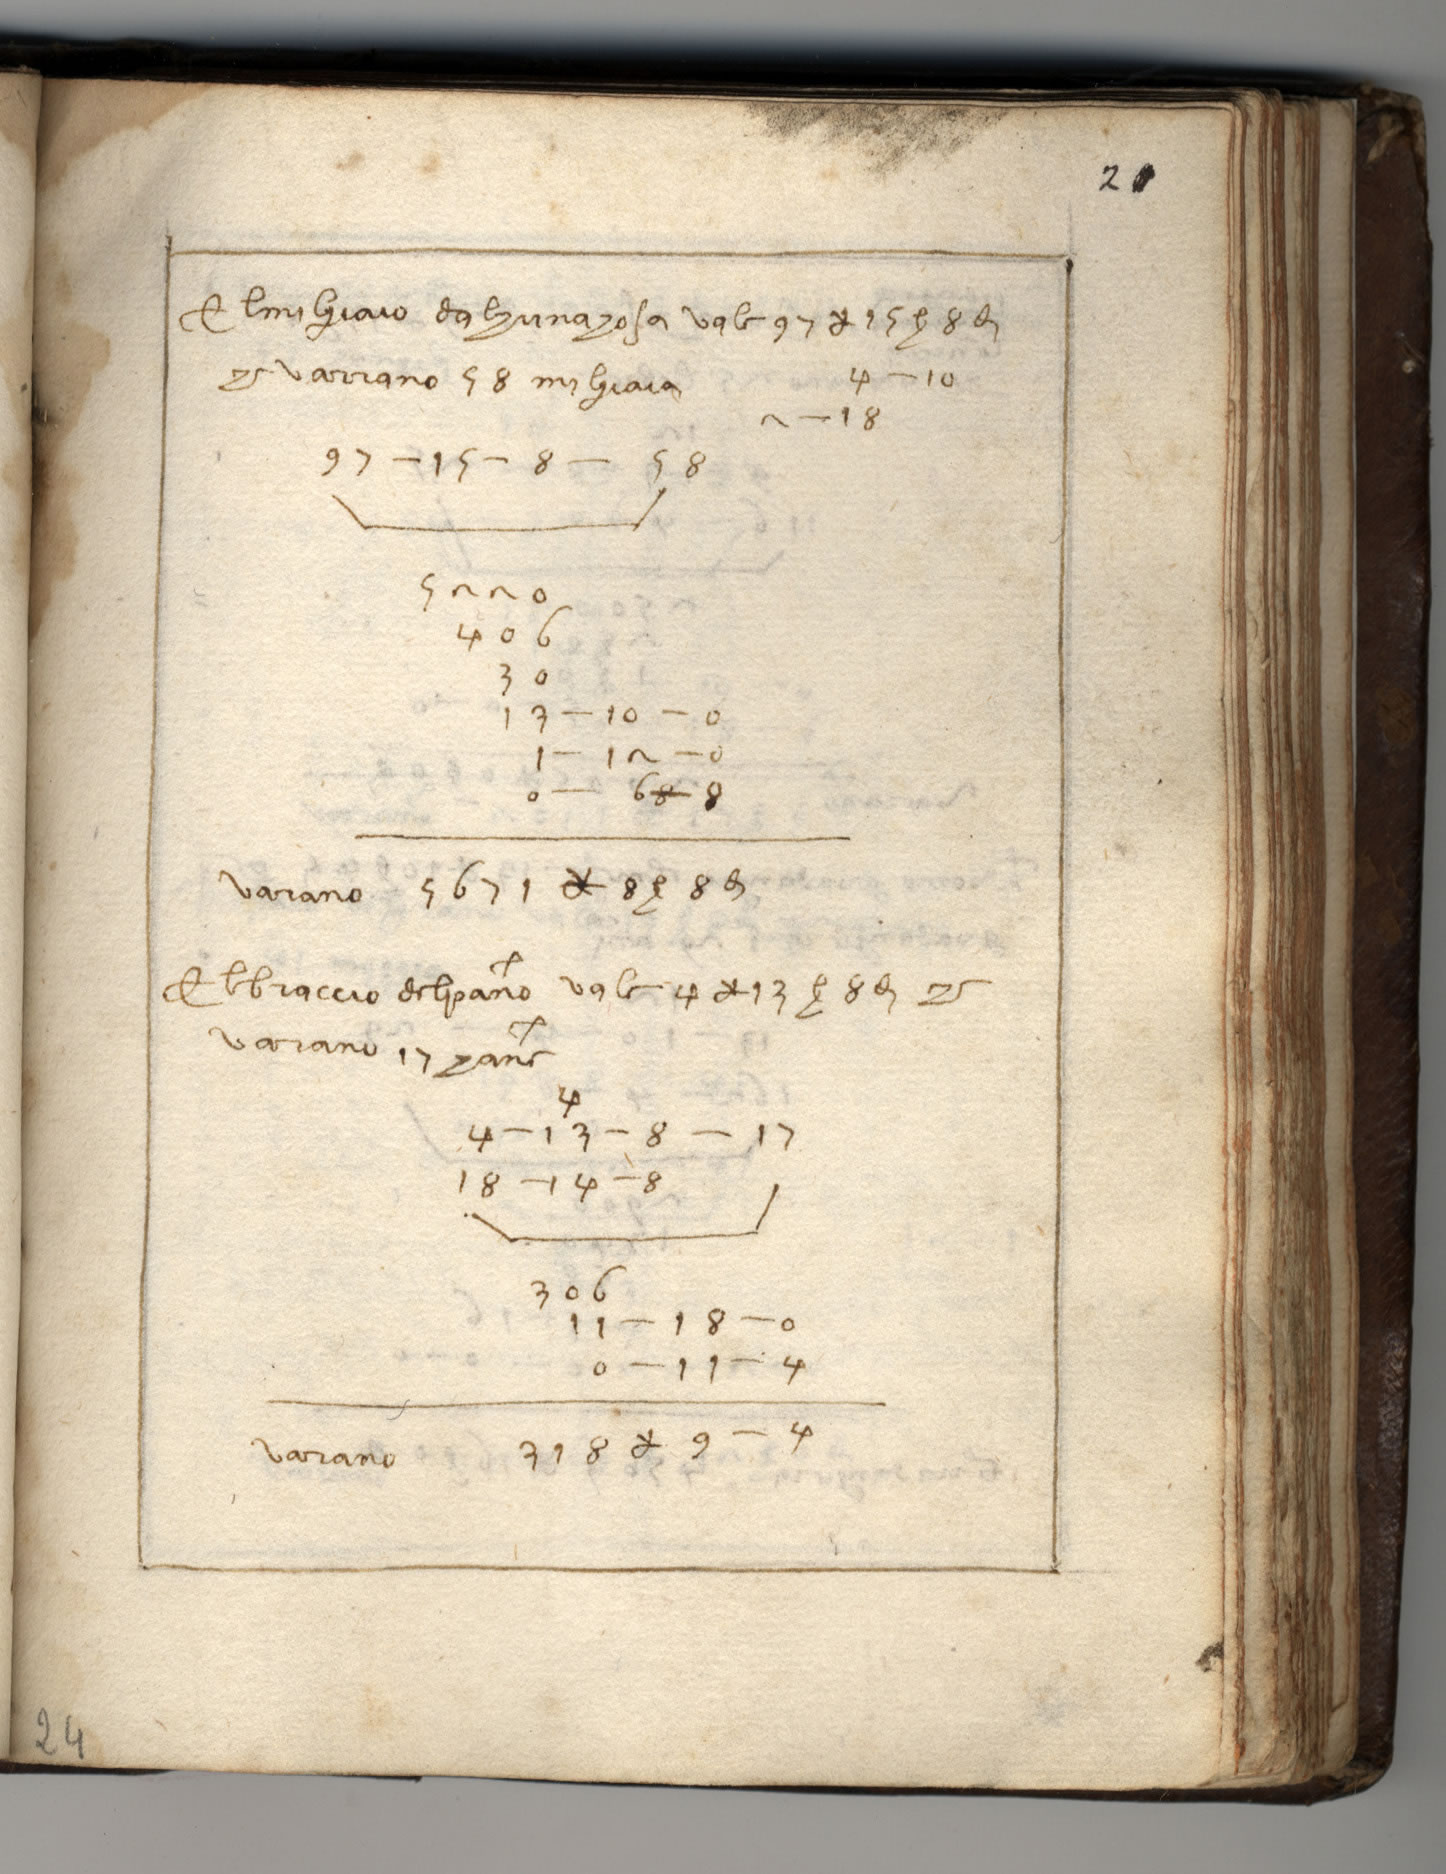 21
El migliaio dalchuna chosa vale 97 ₤ 15 ß 8 d
che varrano 58 migliaia 4 — 10
2 — 18
97 — 15 — 8 — 58
5220
406
30
13 — 10 — 0
1 — 12 — 0
0 — 6 — 8
varano 5671 ₤ 8 ß 8 d
El braccio del pano vale 4 ₤ 13 ß 8 d che
varano 17 chane
4
4 — 13 — 8 — 17
18 — 14 — 8
306
11 — 18 — 0
0 — 11 — 4
varano 318 ₤ 9 — 4
24